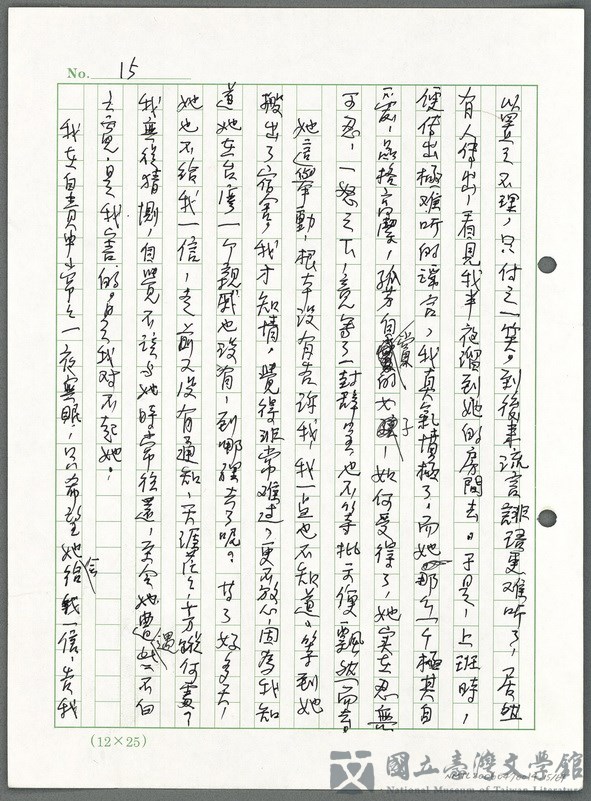 No. 15
以置之不理，只付之一笑。到後來流言誹語更难听了，居然
有人傳出，看見我半夜溜到她的房間去。于是，上班時，
便傳出極难听的謠言，我真氣憤極了，而她那么一个極其自
愛，品格高潔，孤芳自賞的女子，如何受得了，她実在忍無
可忍，一怒之下，竟写了一封辞呈也不等批示便飄然而去。
她這個舉動，根本沒有告訴我，我一点也不知道。等到她
搬出了宿舍，我才知情，覺得非常难过，更不放心，因為我知
道她在台灣一个親戚也沒有，到哪裡去了呢。甘了好多天，
她也不给我一信，走前又沒有通知，天涯茫茫，芳蹤何處？
我無從猜測，自覺不該与她時常往還，害她遭遇不白
之寃，是我害的。是我对不起她。
我在自責中常常一夜無眠，只希望她会给我一信，告我
(12×25)
國立臺灣文學館
National Museum of Taiwan Literature